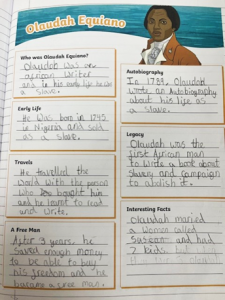 Olaudah Equiano
Who was Olaudah Equiano?
Olaudah was an
african writer
and in his early life he was
a slave.
Early Life
He was born in 1745
in Nigeria and sold
as a slave.
Travels
He travelled the
world with the person
who bought him
and he learnt to read
and write.
A Free Man
After 3 years, he
saved enough money
to be able to buy
his freedom and he
became a free man.
Autobiography
In 1789, Olaudah
wrote an Autobiography
about his life as
a slave.
Legacy
Olaudah was the
first African man
to write a book about
Slavery and campaign
to abolish it.
Interesting Facts
Olaudah married
a women called
and had
7 kids.